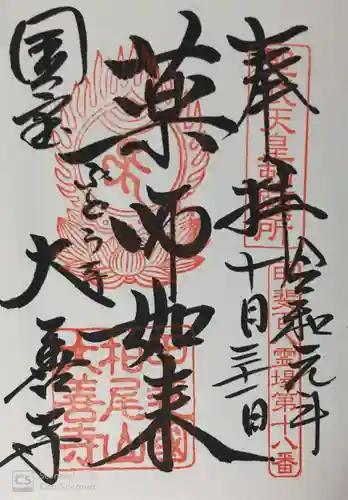 奉拝
令和元年
十月三十一日
薬師如来
国宝
ぶどう寺
大善寺
甲斐百霊場第十八番
柏尾山
大善寺
CS